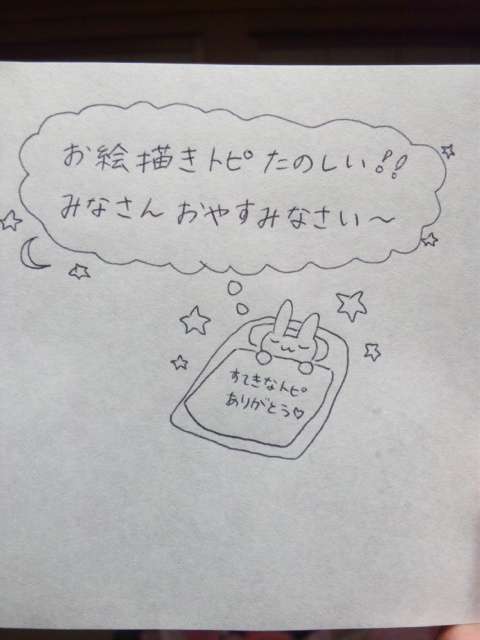 お絵描きトピたのしい!!
みなさんおやすみなさい～
すてきなトピ
ありがとう♡